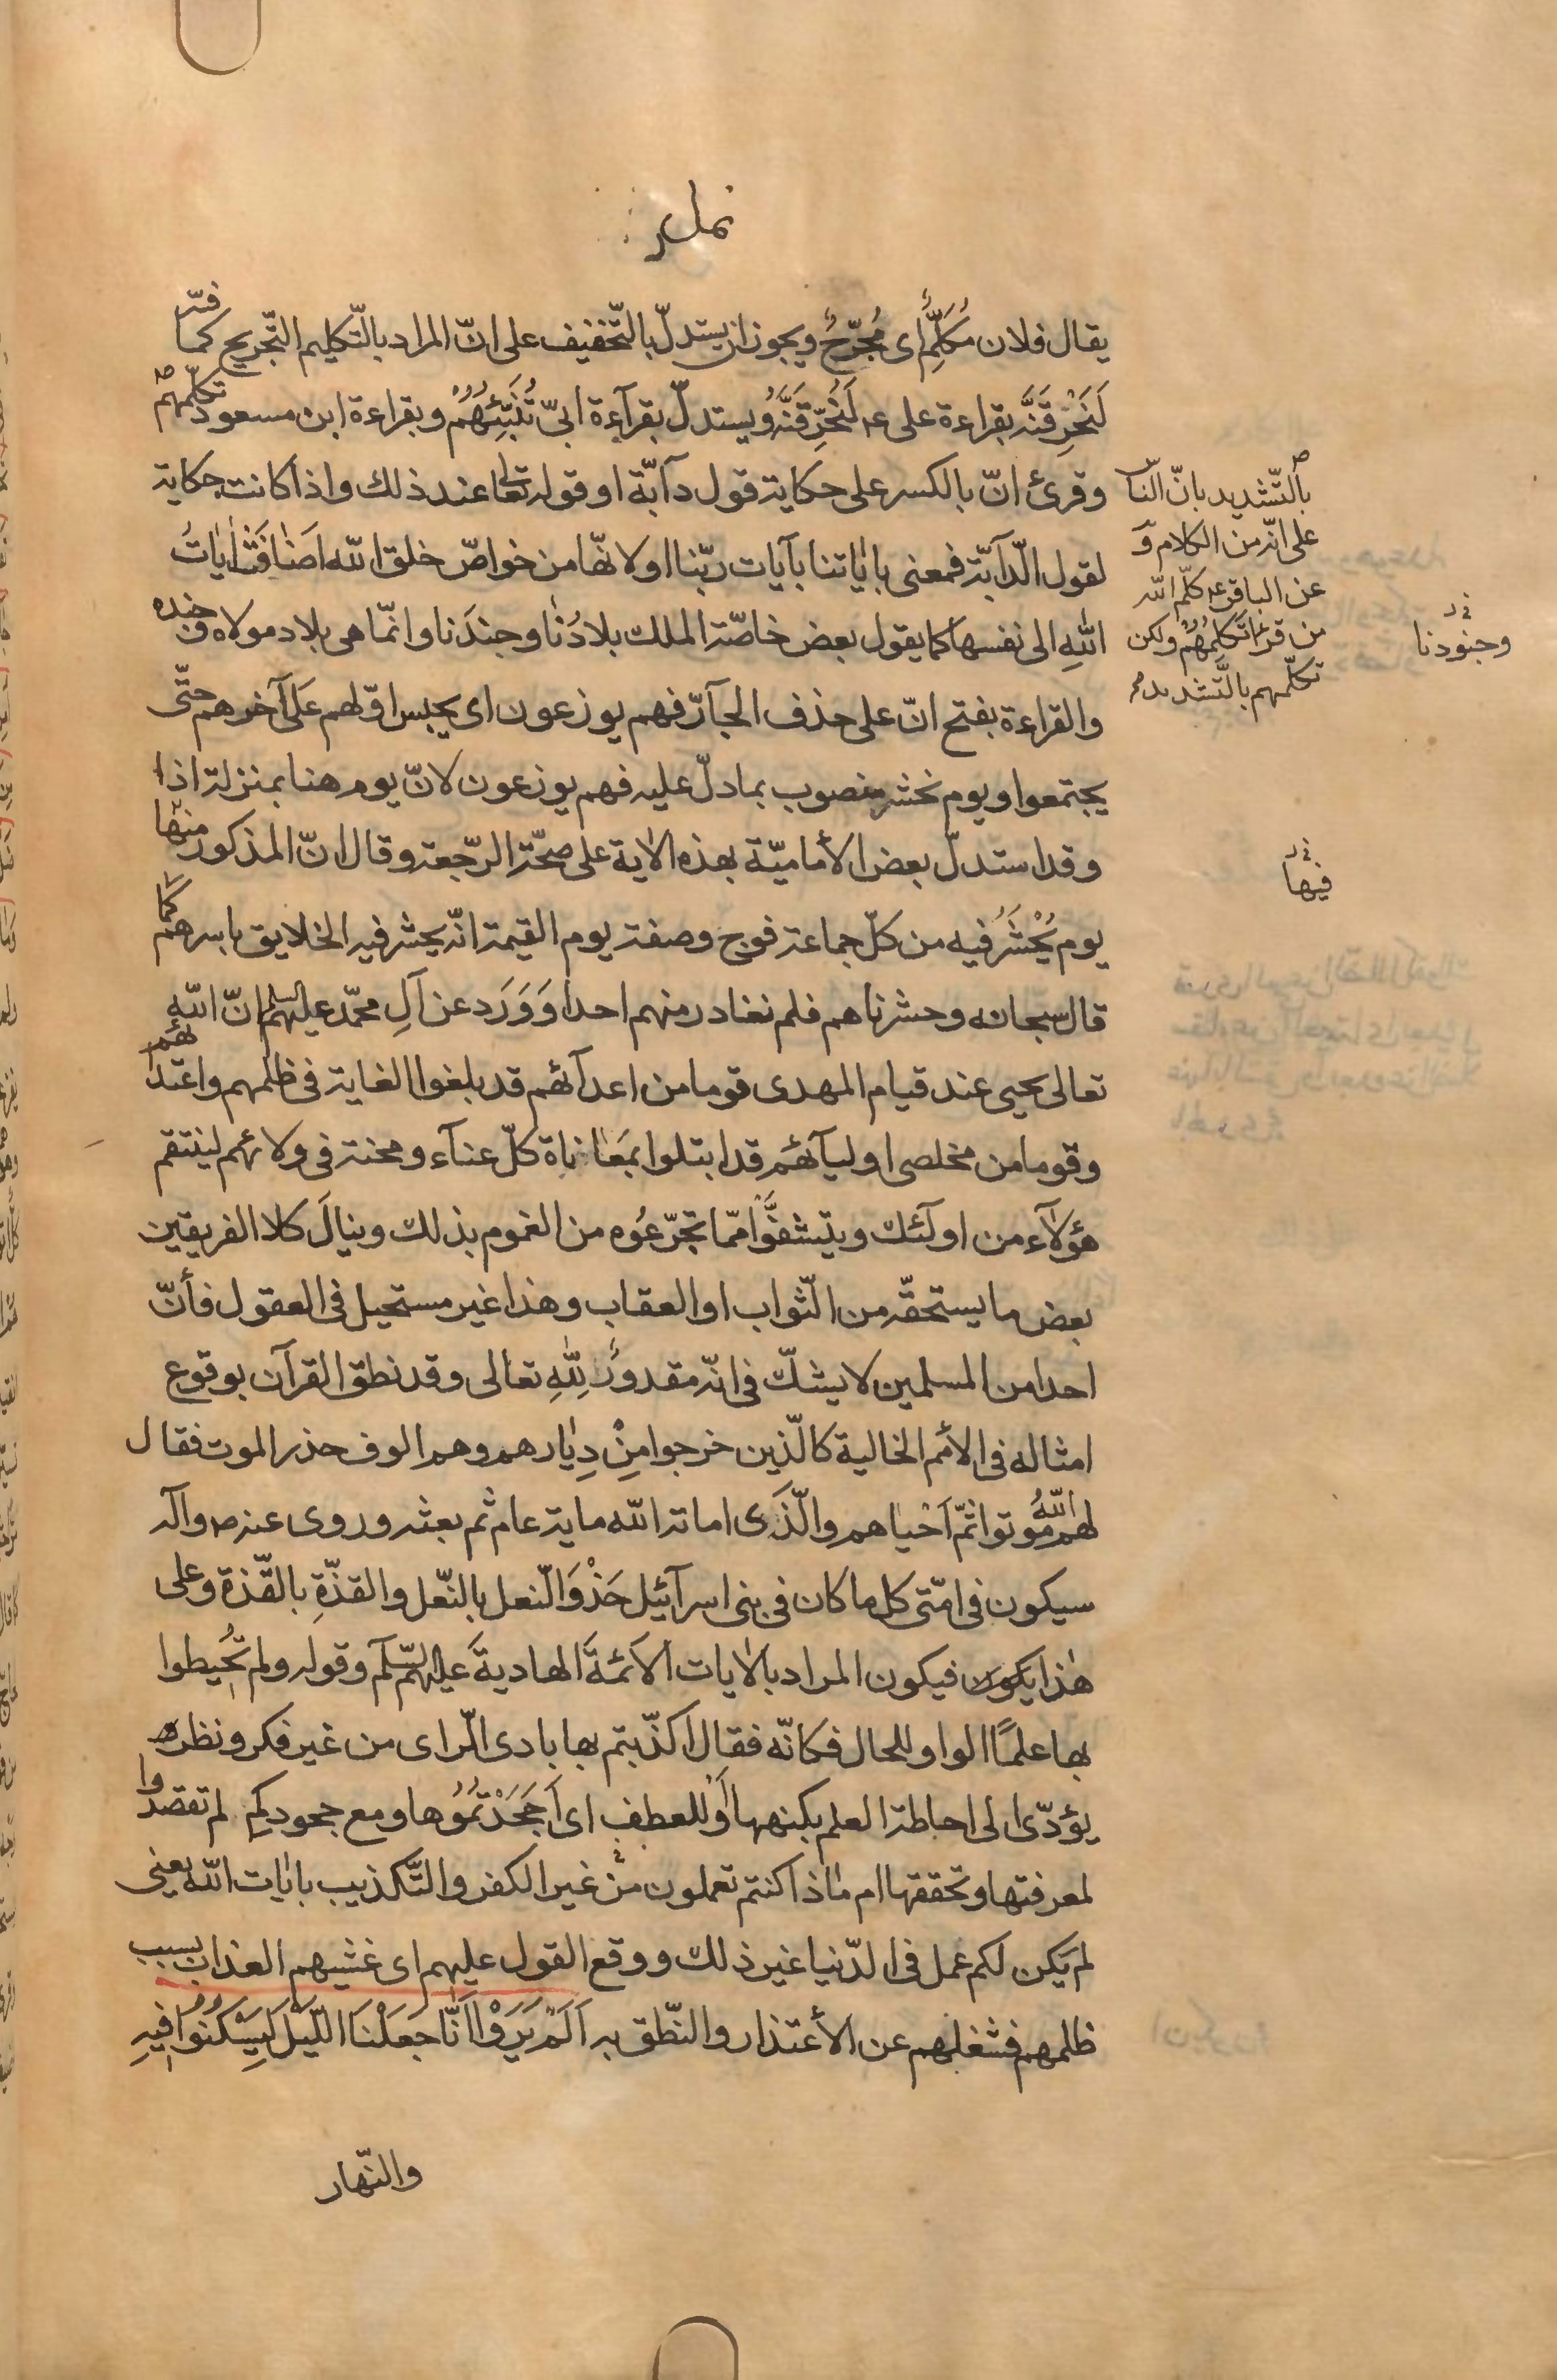 نمل
يقال فلان مُكَلَّمٌ اى مُجَرَّحٌ ويجوز ان يستدلّ بالتّخفيف على انّ المراد بالتّكليم التّجريح كما فسّر
لَنَحْرِقَنَّه بقراءة على ع لَنُحَرِّقَنَّهُ ويستدلّ بقرآءة ابىّ تُنَبِّئُهُمْ وبقراءة ابن مسعود تكلّمهم
وقرئ انّ بالكسر على حكاية قول دآبّة او قوله تعالى عند ذلك واذا كانت حكاية
لقول الدّآبّة فمعنى باٰياتنا بآيات ربّنا او لانّها من خواصّ خلق الله اضٰافَتْ اٰيٰاتُ
اللهِ الى نفسها كما يقول بعض خاصّة الملك بلادُنٰا وجندَنا وانّما هى بلاد مولاه وجنده
والقراءة بفتح انّ على حذف الجآرّ فهم يوزعون اى يحبس اوّلهم عَلى آخرهم حتّى
يجتمعوا ويوم نحشر منصوب بما دلّ عليه فهم يوزعون لانّ يوم هنا بمنزلة اذا
وقد استدلّ بعض الأماميّة بهذه الاٰية على صحّة الرّجعة وقال انّ المذكور منها
يوم يُحْشَرُ فيه من كلّ جماعة فوج وصفة يوم القيمة انّه يحشر فيه الخلايق باسرهم كما
قال سبحانه وحشرناهم فلم نغادر منهم احدا وَوَرَد عن آلِ محمّد عليهم السلم انّ الله
تعالى يحيى عند قيام المهدى قوما من اعدآئهم قد بلغوا الغاية فى ظلمهم واعتدائهم
وقوما من مخلصى اوليآئهم قد ابتلوا بمَعٰاناة كلّ عنآء ومحنة فى ولائهم لينتقم
هؤلآء من اولٓئك ويتشفَّوْا ممّا تجرّعُوه من الغموم بذلك وينالَ كلا الفريقين
بعض ما يستحقّه من الثّواب او العقاب وهذا غير مستحيل فى العقول فأنّ
احدا من المسلمين لا يشكّ فى انّه مقدورٌ لِلّٰهِ تعالى وقد نطق القرآن بوقوع
امثاله فى الأمم الخالية كالّذين خرجوا مِنْ دِيٰارهم وهم الوف حذر الموت فقال
لهم اللّهُ مُوتوا ثمّ اَحْياهم والّذى اماته الله ماية عام ثم بعثه وروى عنه ص وآله
سيكون فى امّتى كل ما كان فى بنى اسرآئيل حَذْوَ النّعل بالنّعل والقذّةِ بالقّذة وعلى
هٰذا يكون فيكون المراد بالاٰيات الائمّةَ الهاديةَ عليهم السّلٓم وقوله ولم تُحيطوا
بها علمًا الواو للحال فكانّه فقال اكذّبتم بها بادى الرّاى من غير فكر ونظر
يؤدّى الى احاطة العلم بكنهها اَوْ للعطف اى اَجَحَدْتمُوُها ومع جحودكم لم تقصدوا
لمعرفتها وتحققها ام مٰاذا كنتم تعملون من غير الكفر والتّكذيب باٰيات اللّه يعنى
لم يكن لكم عمل فى الدّنيا غير ذلك ووقع القول عليهم اى غشيهم العذاب بسبب
ظلمهم فشغلهم عن الأعتذار والنّطق به اَلَمْ يَرَوْا اَنّٰا جَعَلْنَا اللّيْلَ لِيَسْكُنُوا فيهِ
والنّهار
بالتّشديد بانّ النّاس
على انّه من الكلام وَ
عن الباقر ع كلّم الله
من قرا تَكْلِمُهُمْ ولكن
تكلّمهم بالتَّشديد
وجنودنا
فيها